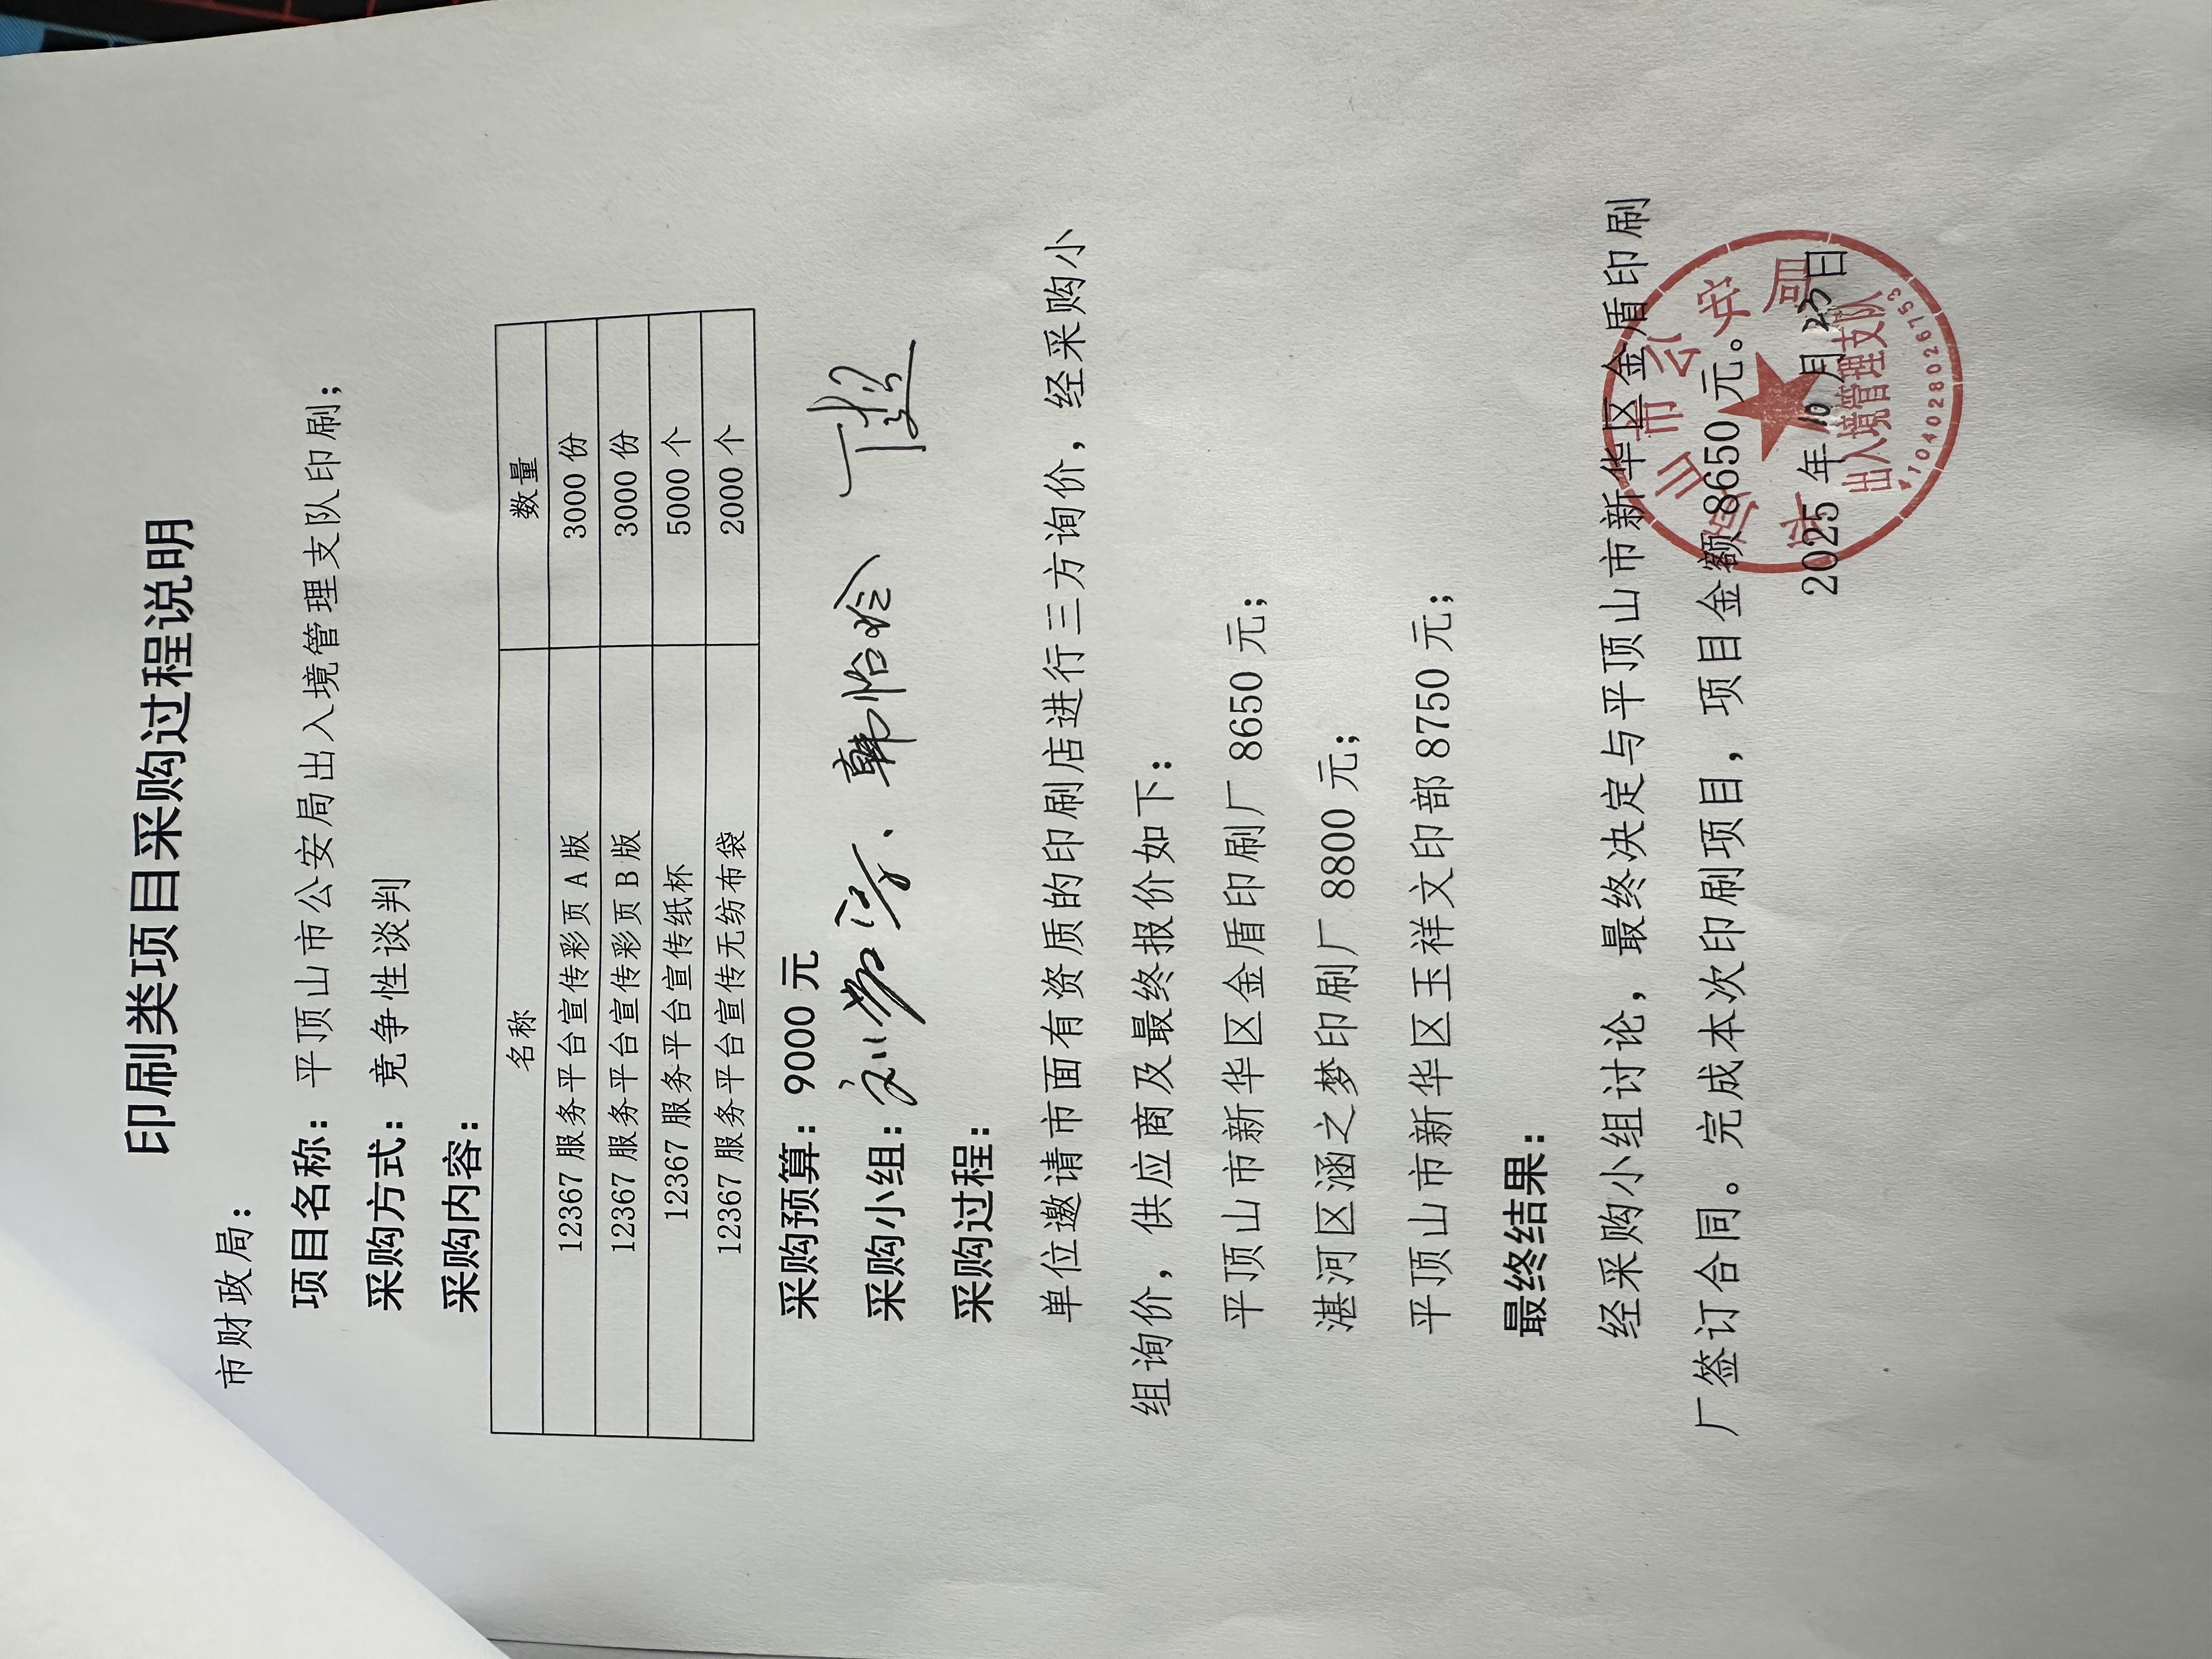 印刷类项目采购过程说明
市财政局：
项目名称：平顶山市公安局出入境管理支队印刷；
采购方式：竞争性谈判
采购内容：
名称 数量
12367 服务平台宣传彩页 A 版 3000 份
12367 服务平台宣传彩页 B 版 3000 份
12367 服务平台宣传纸杯 5000 个
12367 服务平台宣传无纺布袋 2000 个
采购预算：9000 元
采购小组：韩怡玲 丁超
采购过程：
单位邀请市面有资质的印刷店进行三方询价，经采购小
组询价，供应商及最终报价如下：
平顶山市新华区金盾印刷厂 8650 元；
湛河区涵之梦印刷厂 8800 元；
平顶山市新华区玉祥文印部 8750 元；
最终结果：
经采购小组讨论，最终决定与平顶山市新华区金盾印刷
厂签订合同。完成本次印刷项目，项目金额 8650 元。
2025 年 10 月 23 日
平顶山市公安局
出入境管理支队